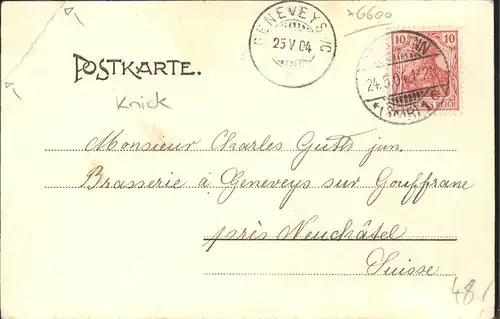 x6600
GENEVEYS s/C
25 V 04
10 10
24.5.04.1-2N
REICH
POSTKARTE.
Knick
Monsieur Charles Guth jun.
Brasserie à Geneveys sur Gouffrane
près Neuchâtel
Suisse
48